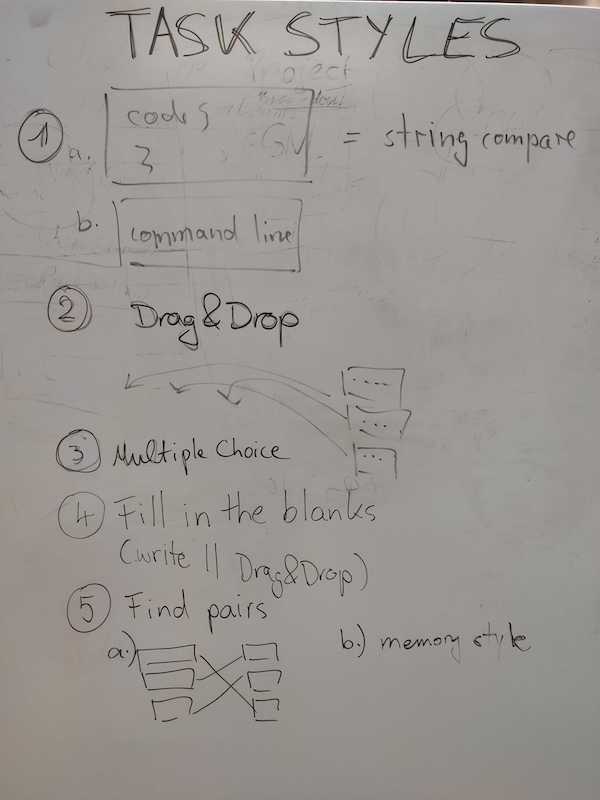 TASK STYLES
Project
1
a.
code {
}
= string compare
b.
command line
2
Drag&Drop
3 Multiple Choice
4 Fill in the blanks
(write || Drag&Drop)
5 Find pairs
a.)
b.) memory style